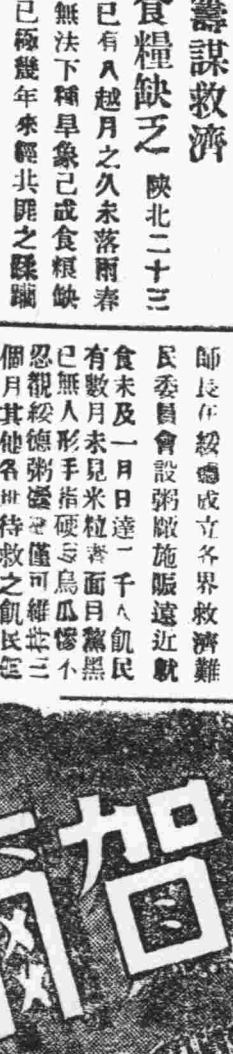 籌謀救濟
食糧缺乏 陝北二十三
已有八越月之久未落雨春
無法下種旱象已成食糧缺
已極幾年來經共匪之蹂躪
師長在綏德成立各界救濟難
民委員會設粥廠施賑遠近就
食未及一月日達二千人飢民
有數月未見米粒者面目黧黑
已無人形手指硬與烏瓜慘不
忍觀綏德粥廠僅可維持三
個月其他各地待救之飢民
賀